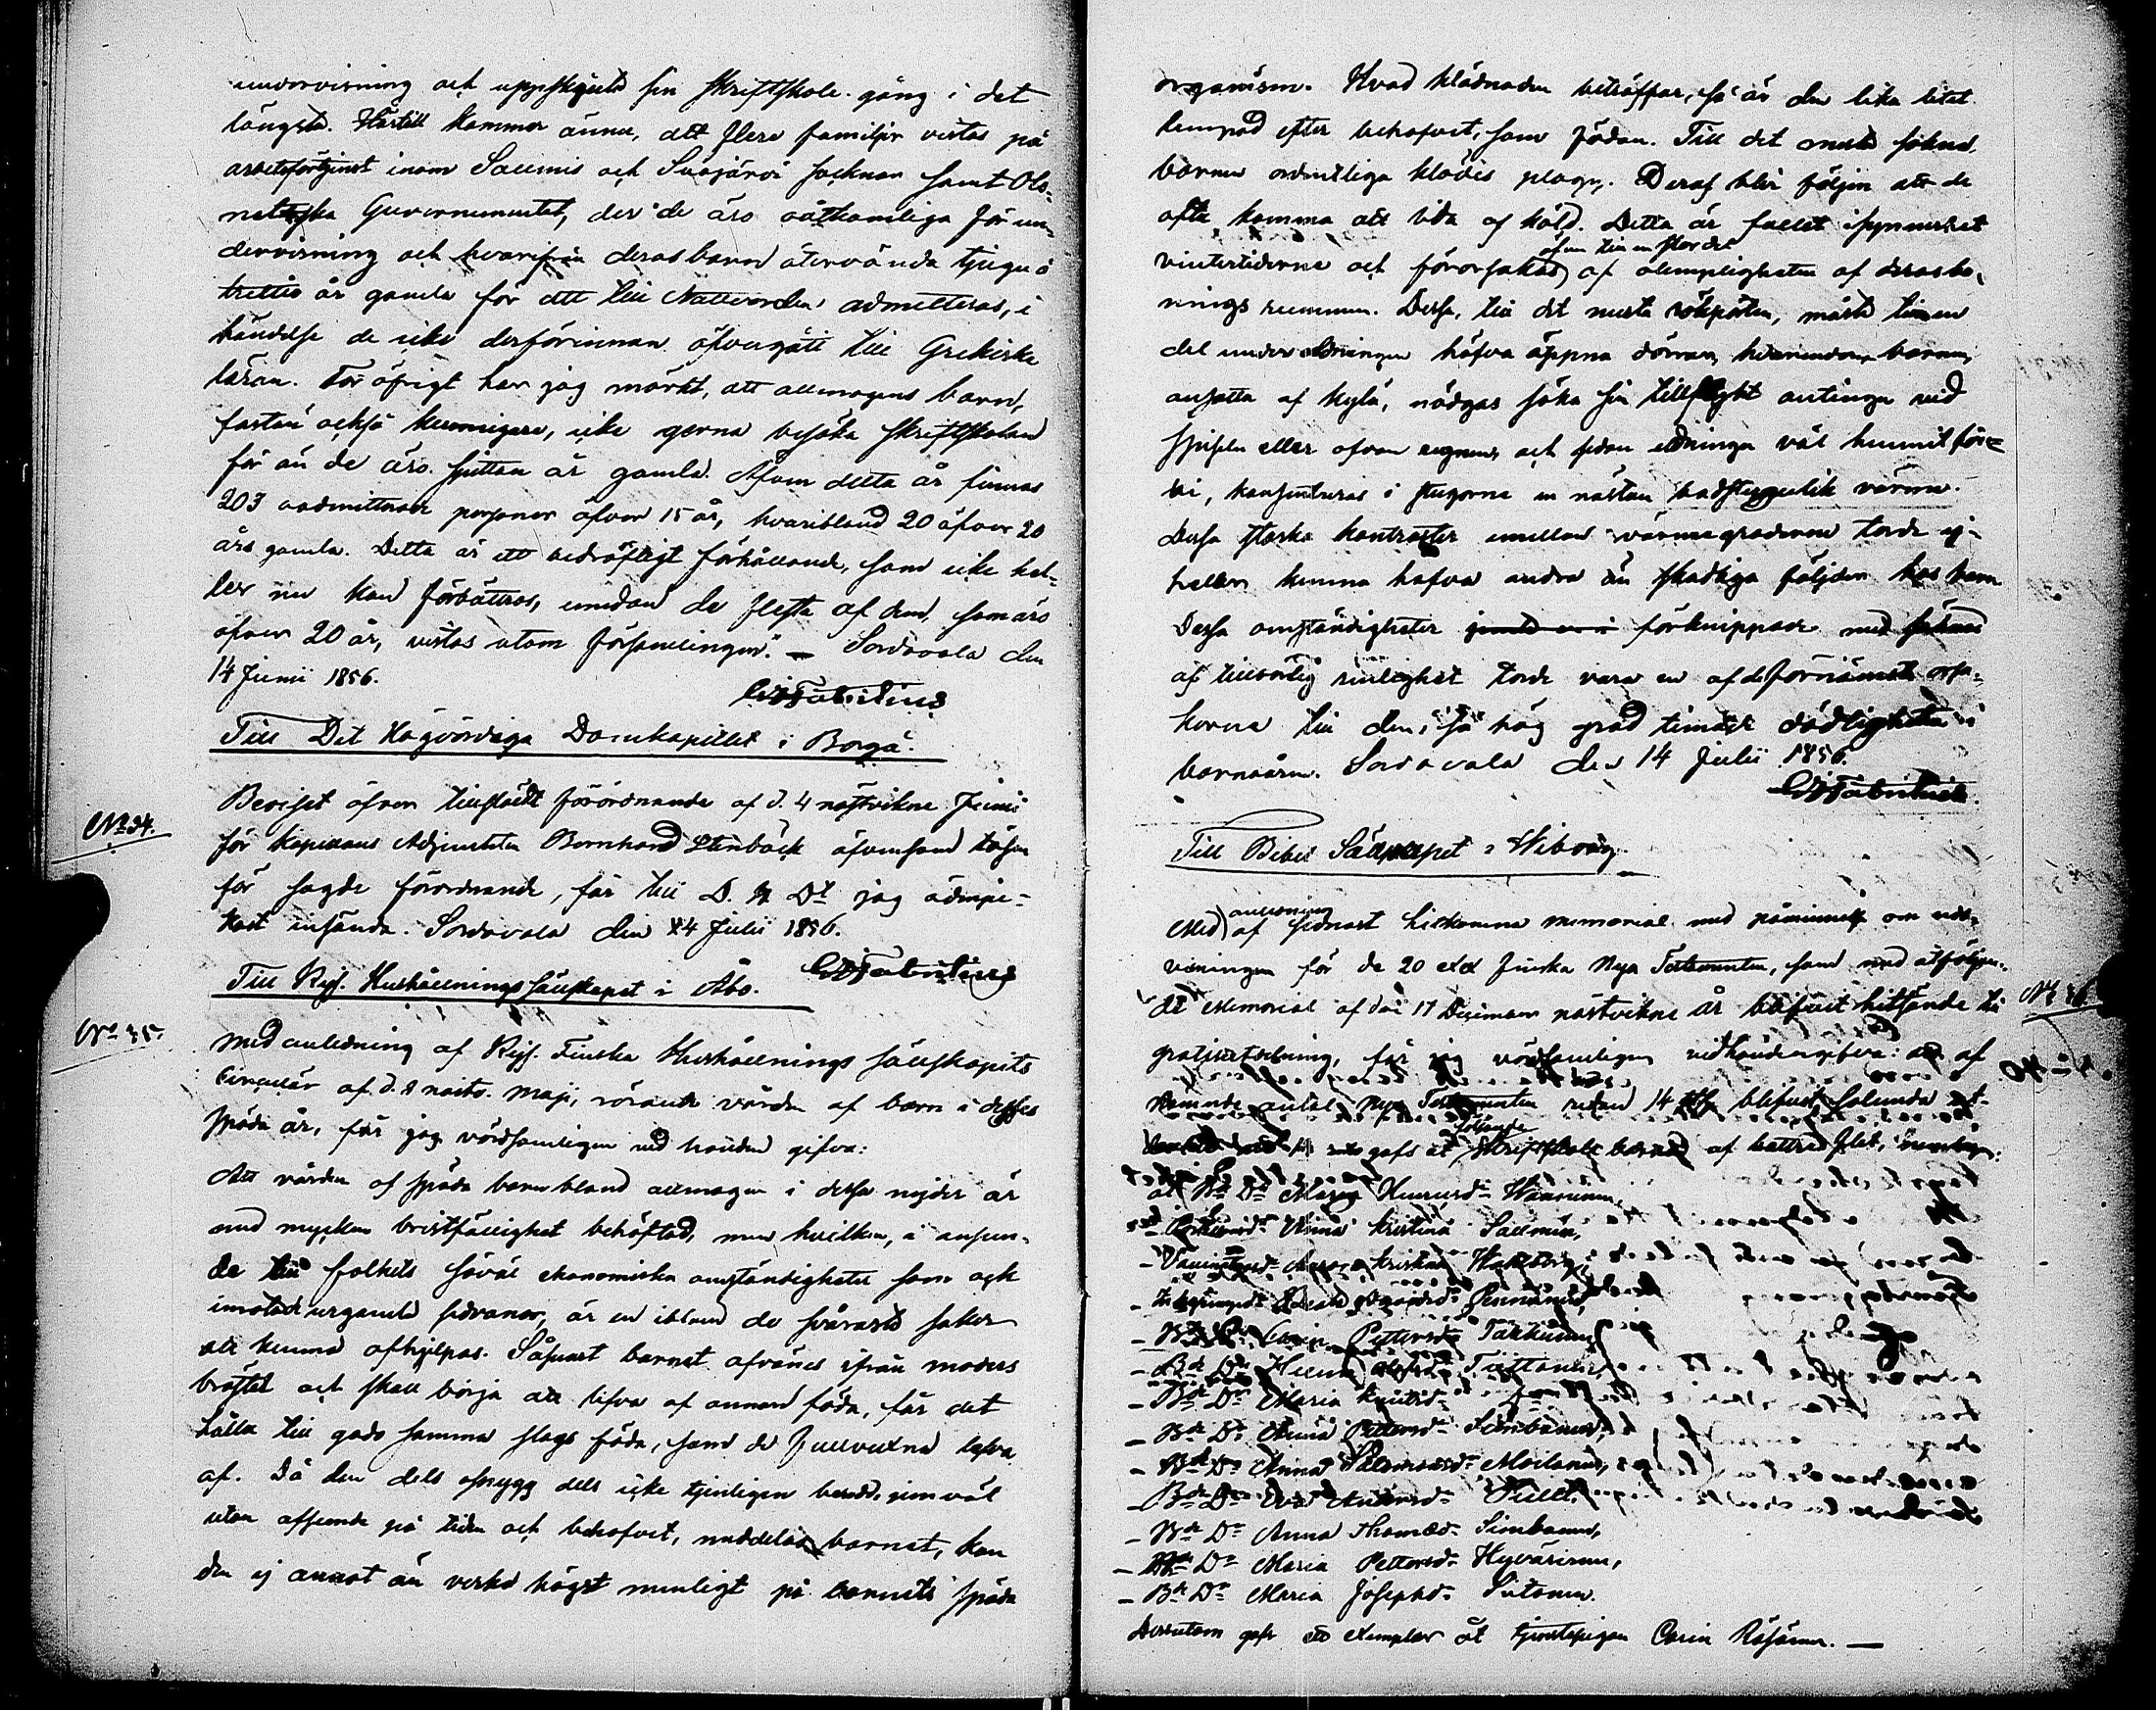 undervisning och uppskjuta sin skriftskole-gång i det
längsta. Härtill kommer ännu, att flere familjer vistas på
arbetsförtjenst inom Salmis och Suojärvi socknar samt Olo-
netska Guvernementet, der de äro oåtkomliga för un-
dervisning och hvarifrån deras barn återvända tjugu à
trettio år gamla för att till Nattvarden admitteras, i
händelse de icke derförinnan öfvergått till Grekiska
läran. För öfrigt har jag märkt, att allmogens barn,
fastän också kunnigare, icke gerna besöka skriftskolan
för än de äro sjutton år gamla. Äfven detta år finnas
203 oadmitterade personer öfver 15 år, hvaribland 20 öfver 20
års gamla. Detta är ett bedröfligt förhållande, som icke hel-
ler nu kan förbättras, emedan de flesta af dem, som äro
öfver 20 år, vistas utom församlingen. — Sordavala den
14 Junii 1856.
Till Det Högvördiga Domkapitlet i Borgå.
No 34.
Beviset öfver tillstädt förordnande af d. 4 nästvikne Junii
för Kapellans Adjunkten Bernhard Stenbäck äfvensom lösen
för sagde förordnande, får till D. H. Dt jag ödmju-
kast insända. Sordavala den 14 Julii 1856.
Till Kejs. Hushållnings Sällskapet i Åbo.
No 35.
Med anledning af Kejs. Finska Hushållnings Sällskapets
Cirqulär af d. 8 nästv. Maji, rörande vården af barn i desses
späda år, får jag vördsamligen vid handen gifva:
Att vården af späda barn bland allmogen i dessa nejder är
med mycken bristfällighet behäftad, men hvilken, i anseen-
de till folkets såväl ekonomiska omständigheter som ock
inrotade urgamla sedvanor, är en ibland de svåraste saker
att kunna afhjelpas. Såsnart barnet afvänes ifrån moders
bröstet och skall börja att lefva af annan föda, får det
hålla till godo samma slags föda, som de fullvuxna lefva
af. Då den dels osnygg dels icke tjenligen beredd, som väl
utan afseende på tiden och behofvet, meddelas barnet, kan
den ej annat än verka högst menligt på barnets späda
organism. Hvad klädnaden beträffar, så är den lika litet
lämpad efter behofvet, som födan. Till det mesta sakna
barnen ordentliga klädes plagg. Deraf blir följen att de
ofta komma att lida af köld. Detta är fallet isynnerhet
äfven till en stor del
vintertiderne och förorsakas af olämpligheten af deras bo-
nings rummen. Dessa, till det mesta rökpörten, måste timmen
del under eldningen hafva öppna dörrar, hvarunder barnen,
ansatta af kyla, nödgas söka sin tillflygt antingen vid
spiseln eller ofvan ugnen, och sedan eldningen väl hunnit för-
bi, konsentreras i stugorna en nästan badstugulik värme.
Dessa starka kontraster emellan värmegraderne torde ej
heller kunna hafva andra än skadliga följder hos barn.
Dessa omständigheter förknippade med saknad
af tillbörlig renlighet torde vara en af de förnämsta orsa-
kerna till den i så hög grad timade dödligheten i
barnaåren. Sordavala den 14 Julii 1856.
Till Bibel Sällskapet i Wiborg.
anledning
Med af sednast hitkomna memorial med påminnelse om redo-
visningen för de 20 ex Finska Nya Testamenten, som med åtföljan-
de Memorial af den 17 Decemani nästvikne år blifvit hitsände till
No 36.
gratisutdelning, får jag vördsamligen vidhandengifva: att af
nämnde antal Nya Testamenten redan 14 blifvit
följande
gafs åt Skriftskole barnen af bättre flit, nemligen:
åt Bd Dr Maria
— Anna Kristina Salmén,
— Bd Dr Carin Pettersdr
— Bd Dr Helena
— Bd Dr Maria
— Bd Dr Anna Pettersdr
— Bd Dr Anna Salomonsdr Moilanen,
— Bd Dr Eva Andersdr
— Bd Dr Anna Thomædr
— Bd Dr Maria Pettersdr Hyvärinen,
— Bd Dr Maria Josephdr
Dessutom gafs ett exemplar åt tjenstepigan Carin Räsänen. —